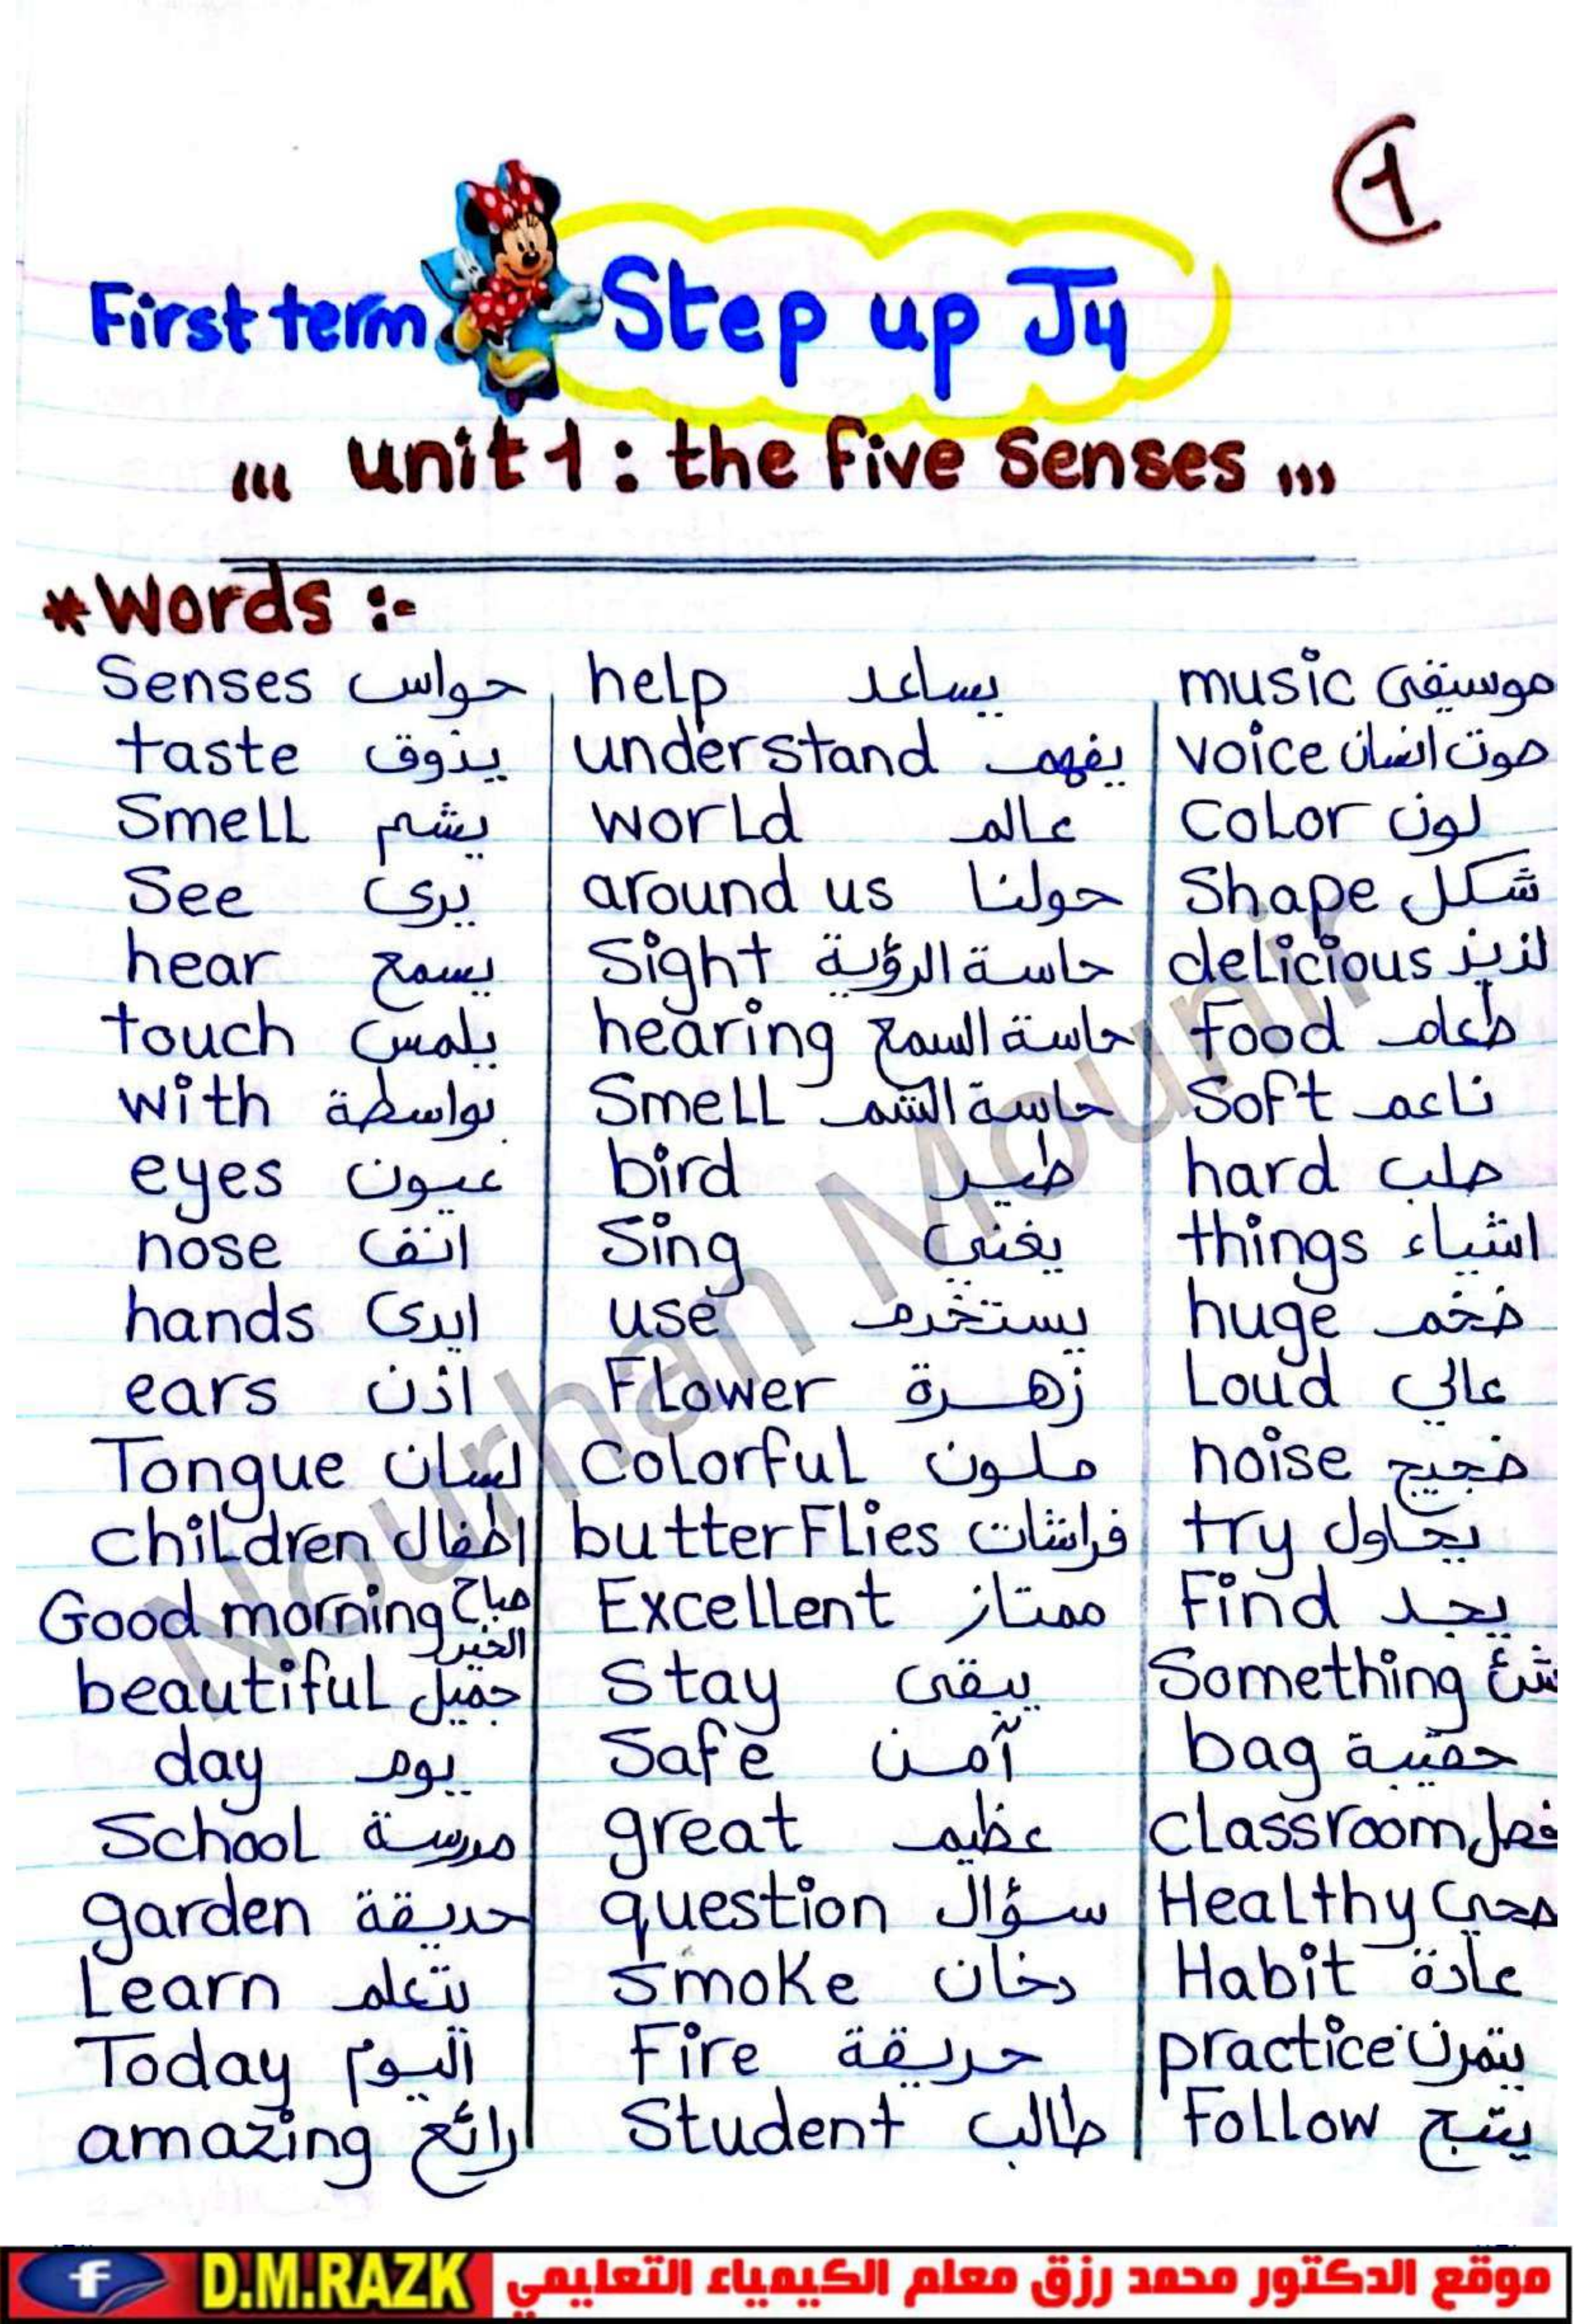 1
First term Step up J4
unit 1 : the five Senses
*Words :-
Senses حواس help يساعد music موسيقى
taste يذوق understand يفهم voice صوت انسان
Smell يشم world عالم Color لون
See يرى around us حولنا Shape شكل
hear يسمع Sight حاسة الرؤية delicious لذيذ
touch يلمس hearing حاسة السمع food طعام
with بواسطة Smell حاسة الشم Soft ناعم
eyes عيون bird طير hard صلب
nose انف Sing يغني things اشياء
hands ايدى use يستخدم huge ضخم
ears اذن Flower زهرة Loud عالي
Tongue لسان Colorful ملون noise ضجيج
children اطفال butterflies فراشات try يحاول
Good morning صباح الخير Excellent ممتاز Find يجد
beautiful جميل Stay يبقى Something شئ
day يوم Safe آمن bag حقيبة
School مدرسة great عظيم classroom فصل
garden حديقة question سؤال Healthy صحي
Learn يتعلم smoke دخان Habit عادة
Today اليوم Fire حريقة practice يتمرن
amazing رائع Student طالب Follow يتبع
Nourhan Mounir
f D.M.RAZK موقع الدكتور محمد رزق معلم الكيمياء التعليمي